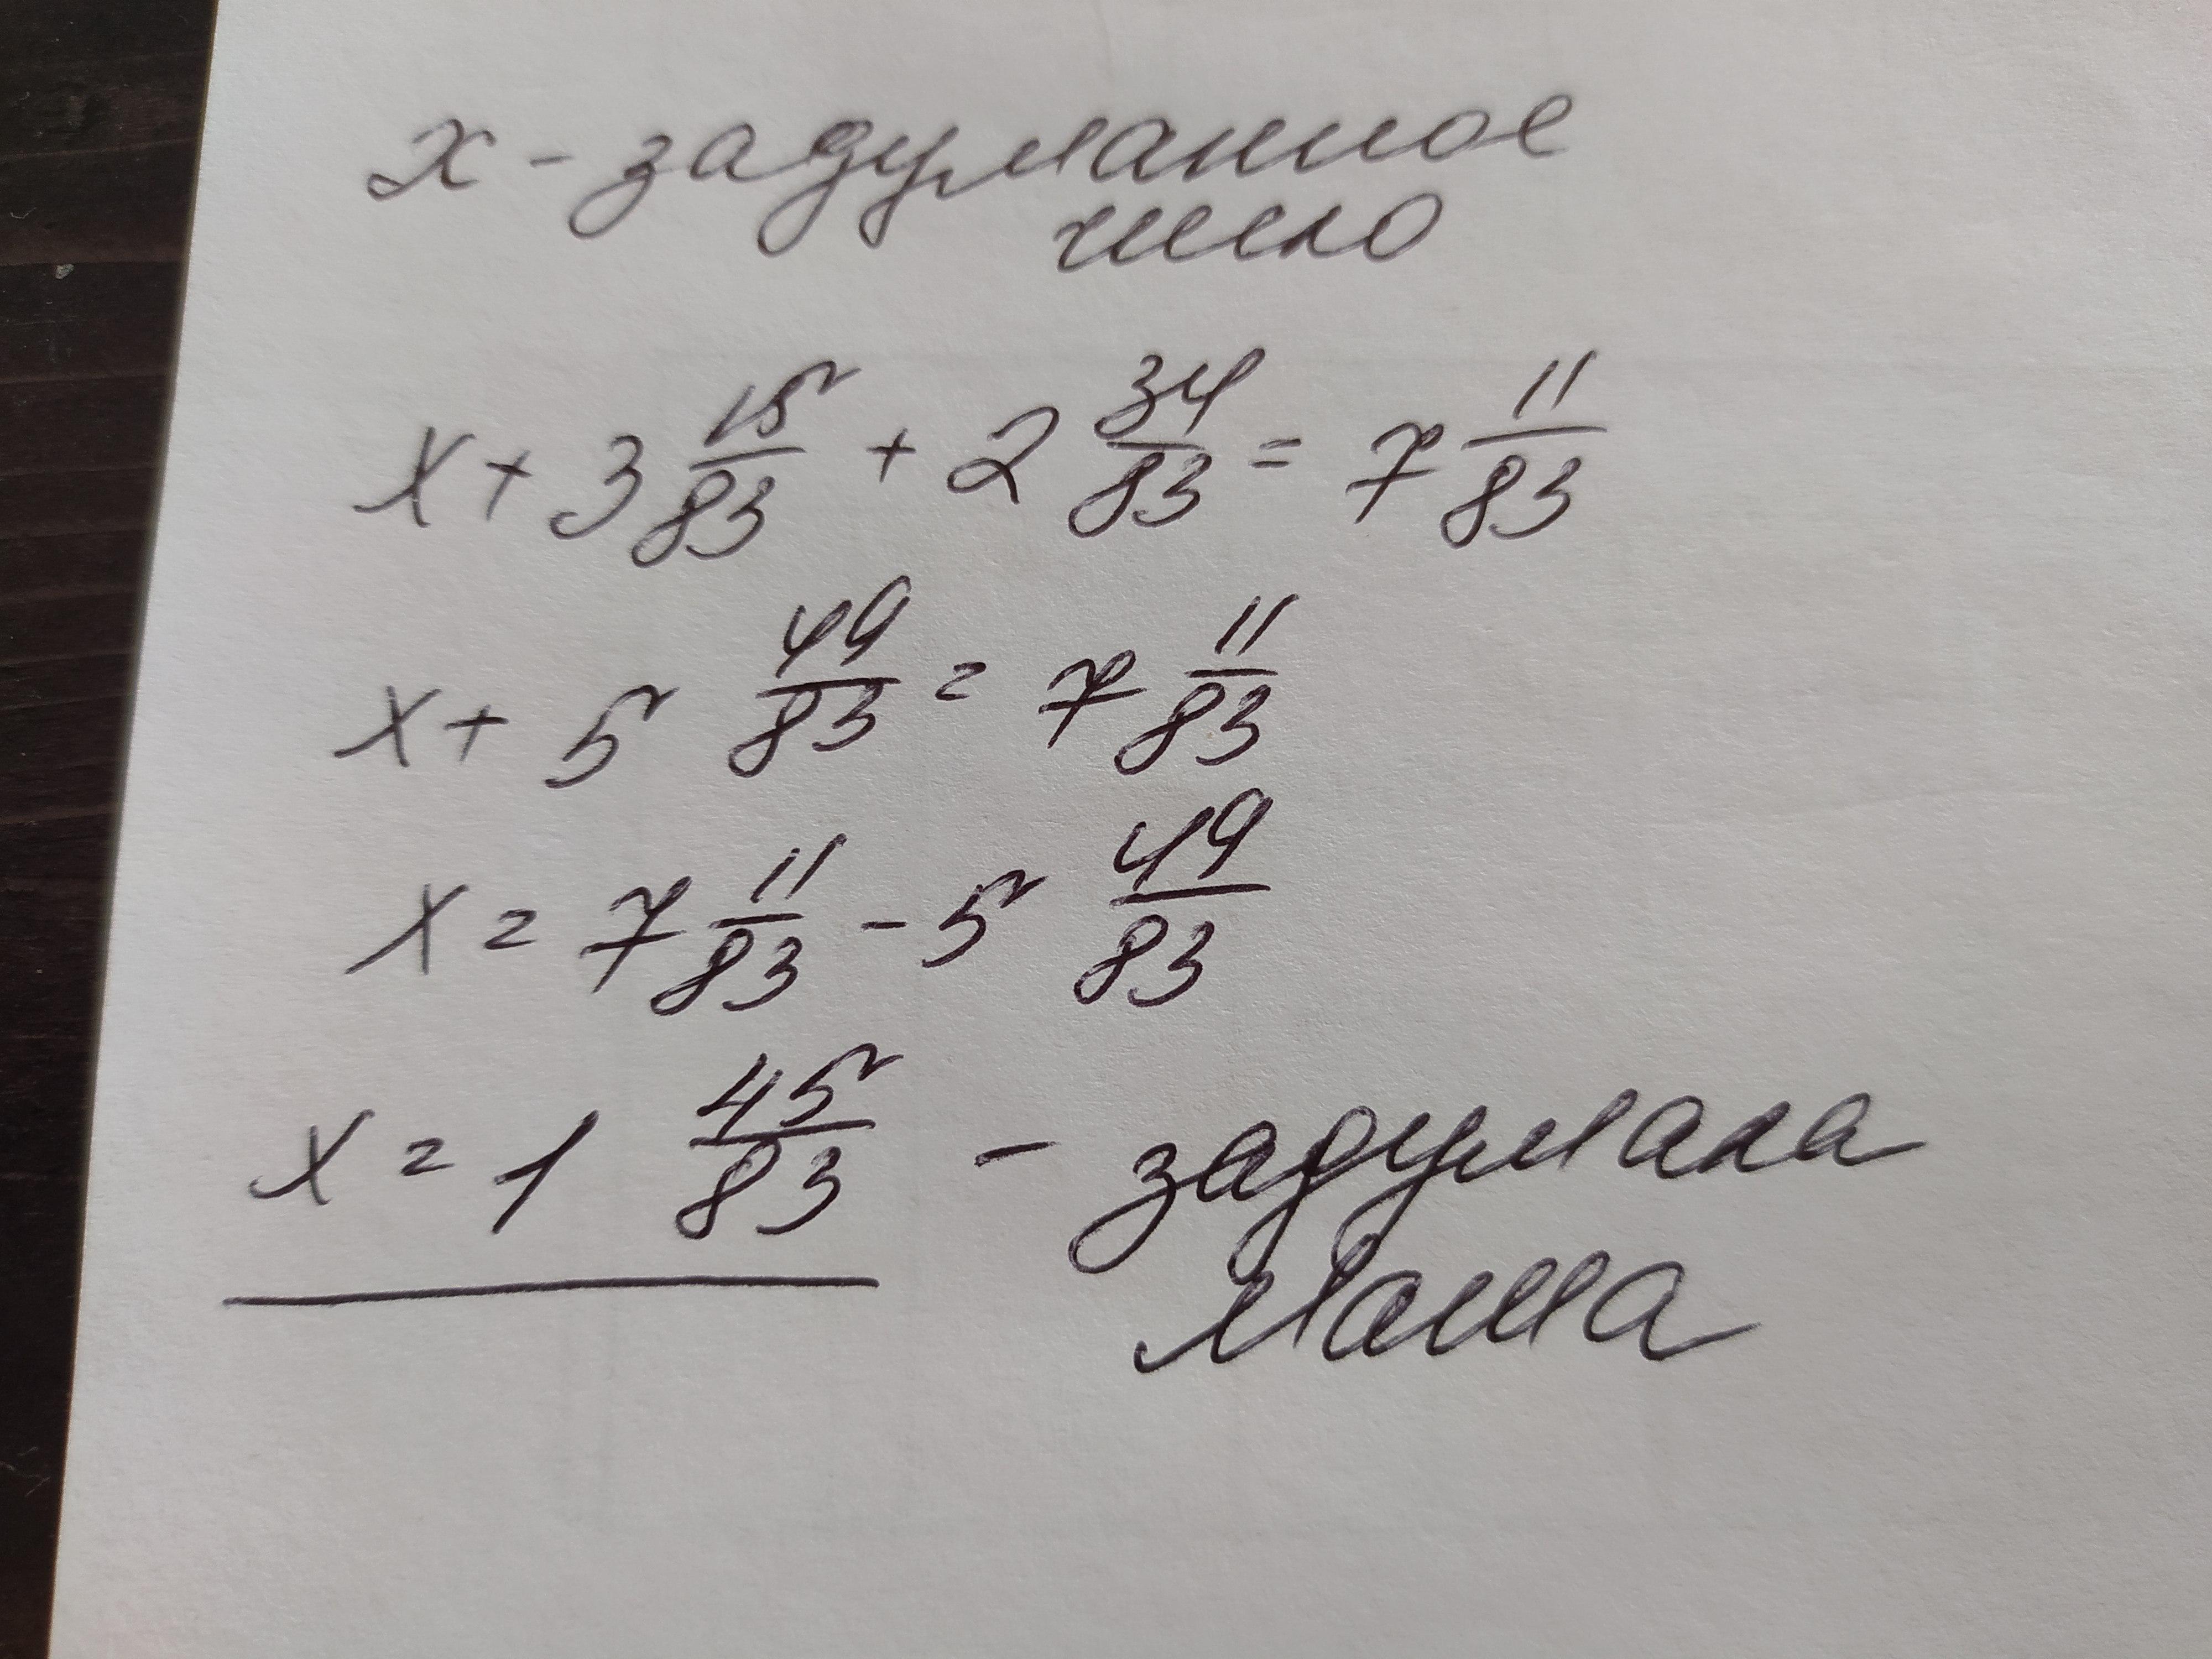 x - задуманное
число
x + 3 15/83 + 2 34/83 = 7 11/83
x + 5 49/83 = 7 11/83
x = 7 11/83 - 5 49/83
x = 1 45/83 - задумала
Маша